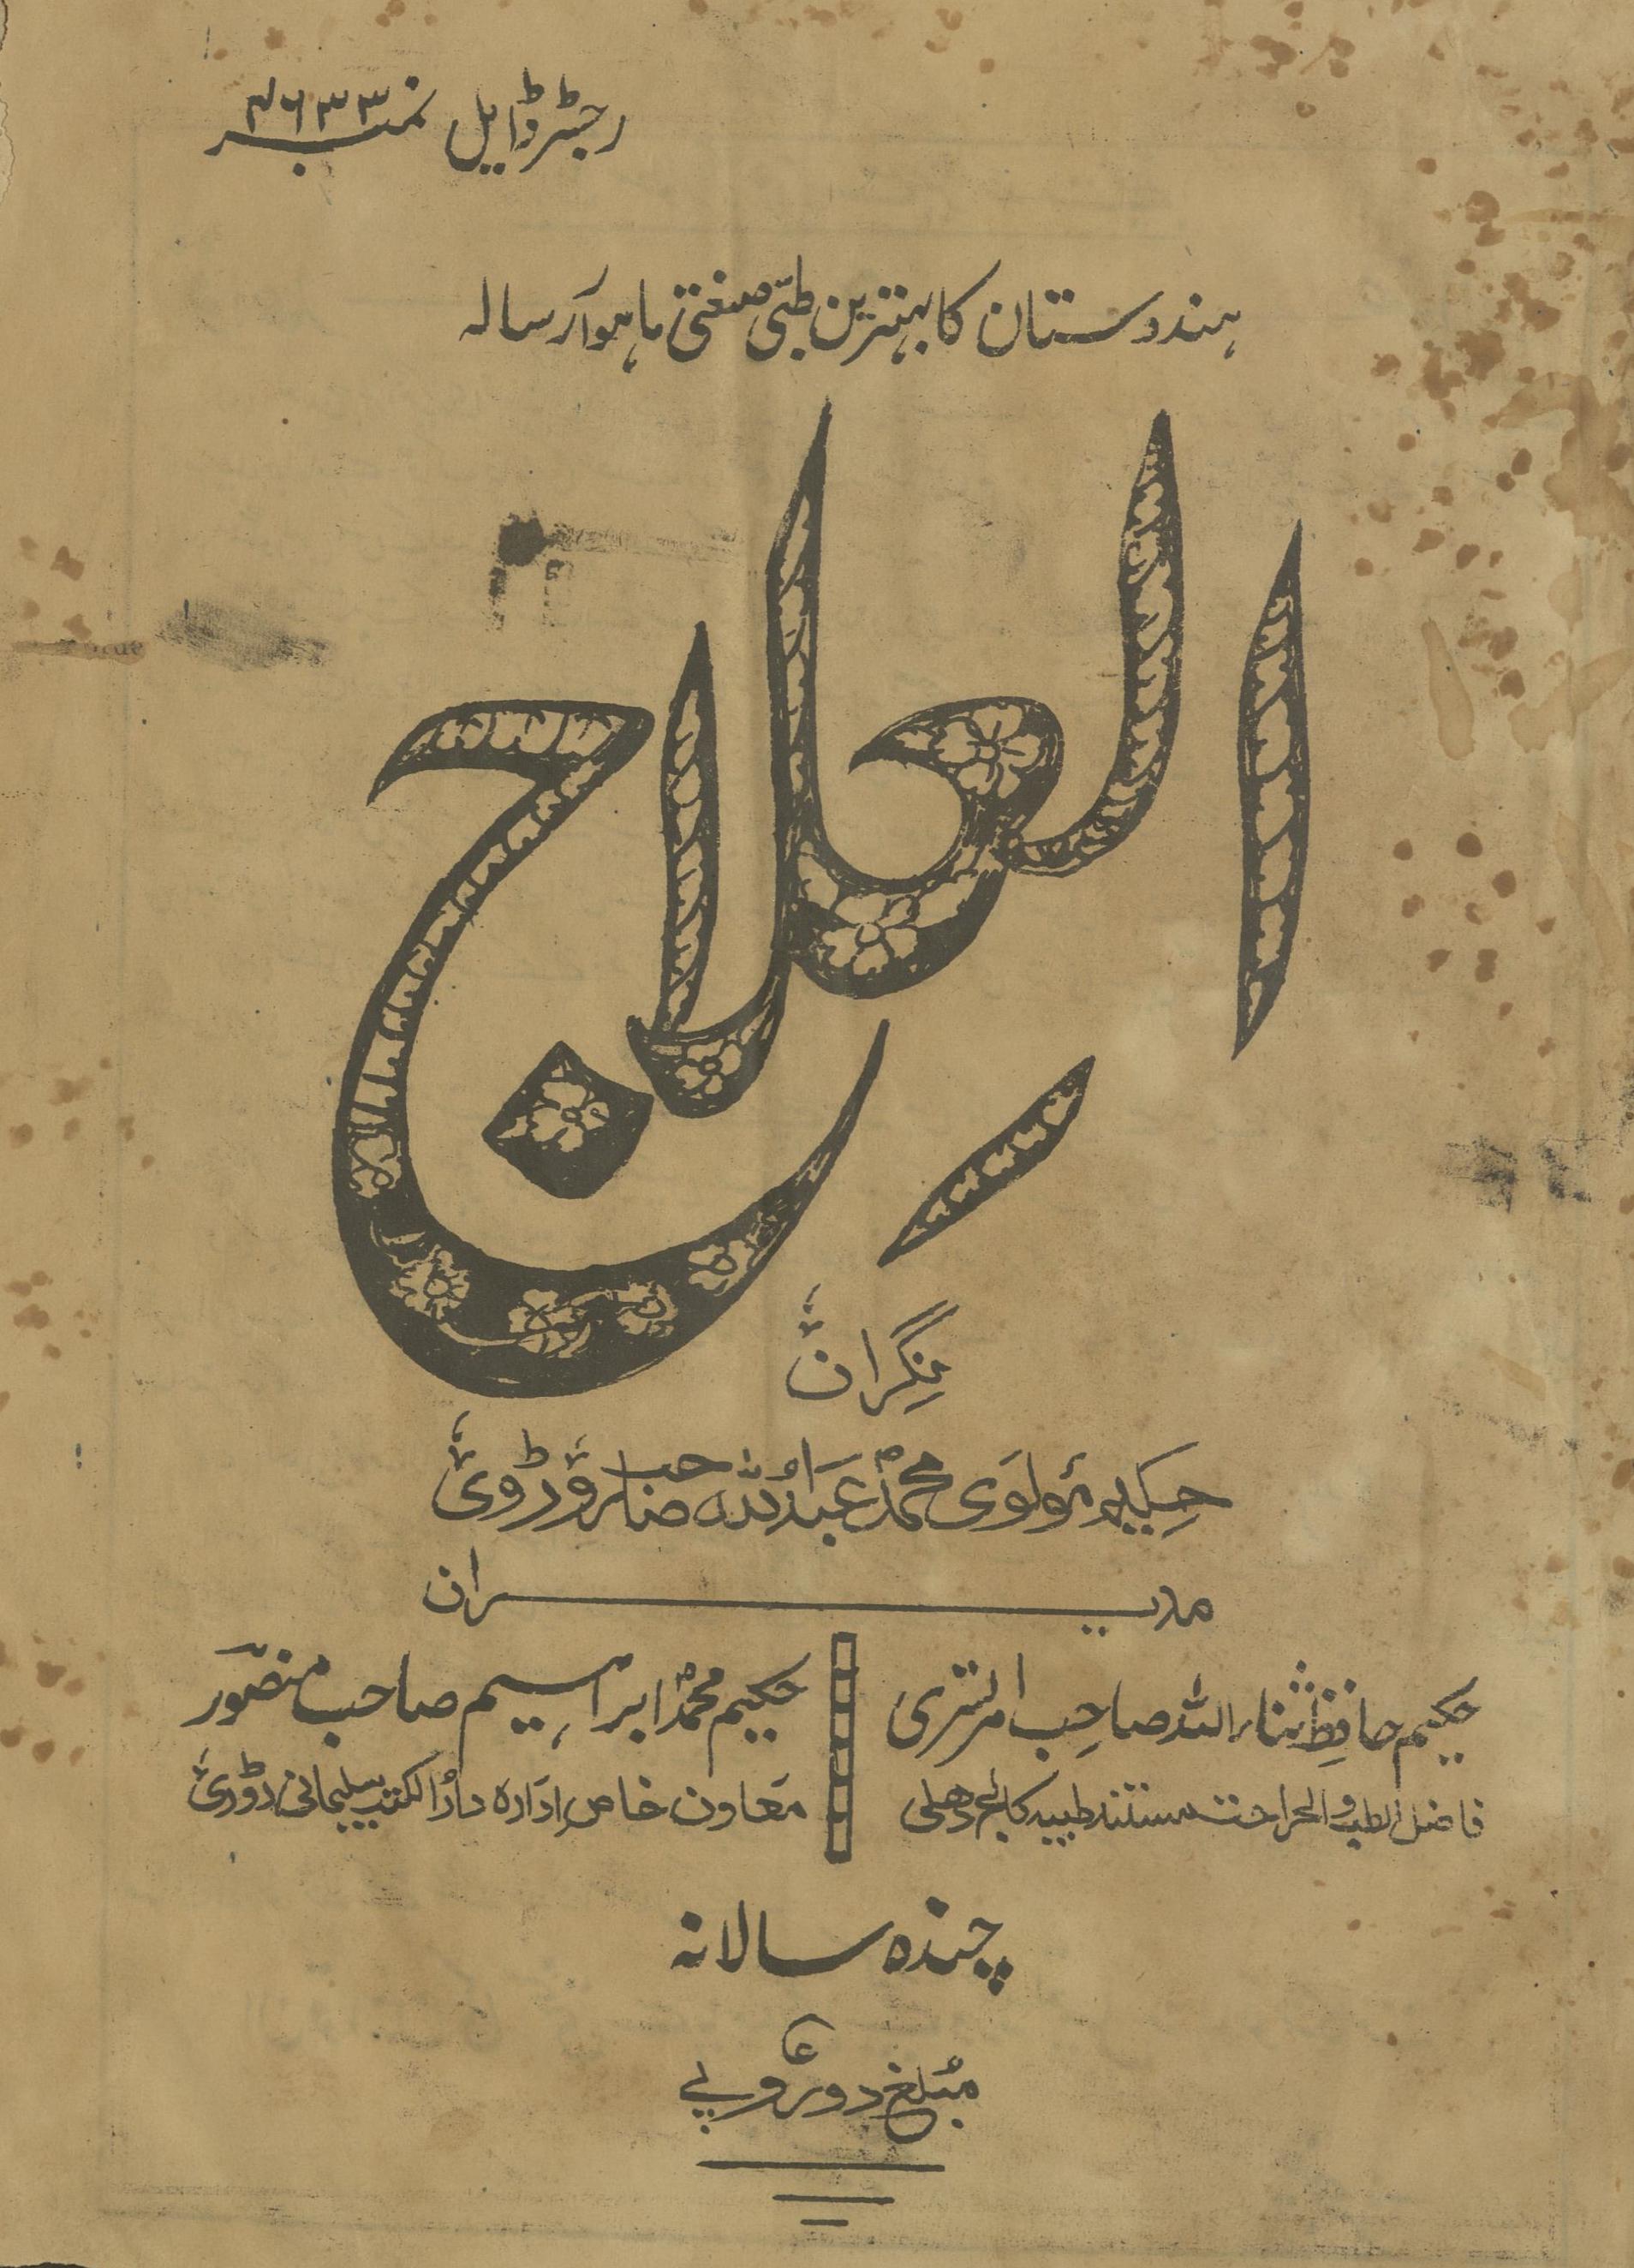 رجسٹرڈ ایل نمبر ۴۶۳۳
ہندوستان کا بہترین طبی صنعتی ماہوار رسالہ
العلاج
نگران
حکیم مولوی محمد عبداللہ صاحب روڑوی
مدیران
حکیم حافظ ثناء اللہ صاحب امرتسری
فاضل الطب والجراحت مستند طبیہ کالج دھلی
حکیم محمد ابراہیم صاحب منصور
معاون خاص ادارہ دارالکتب سلیمانی روڑی
چندہ سالانہ
مبلغ دو روپے